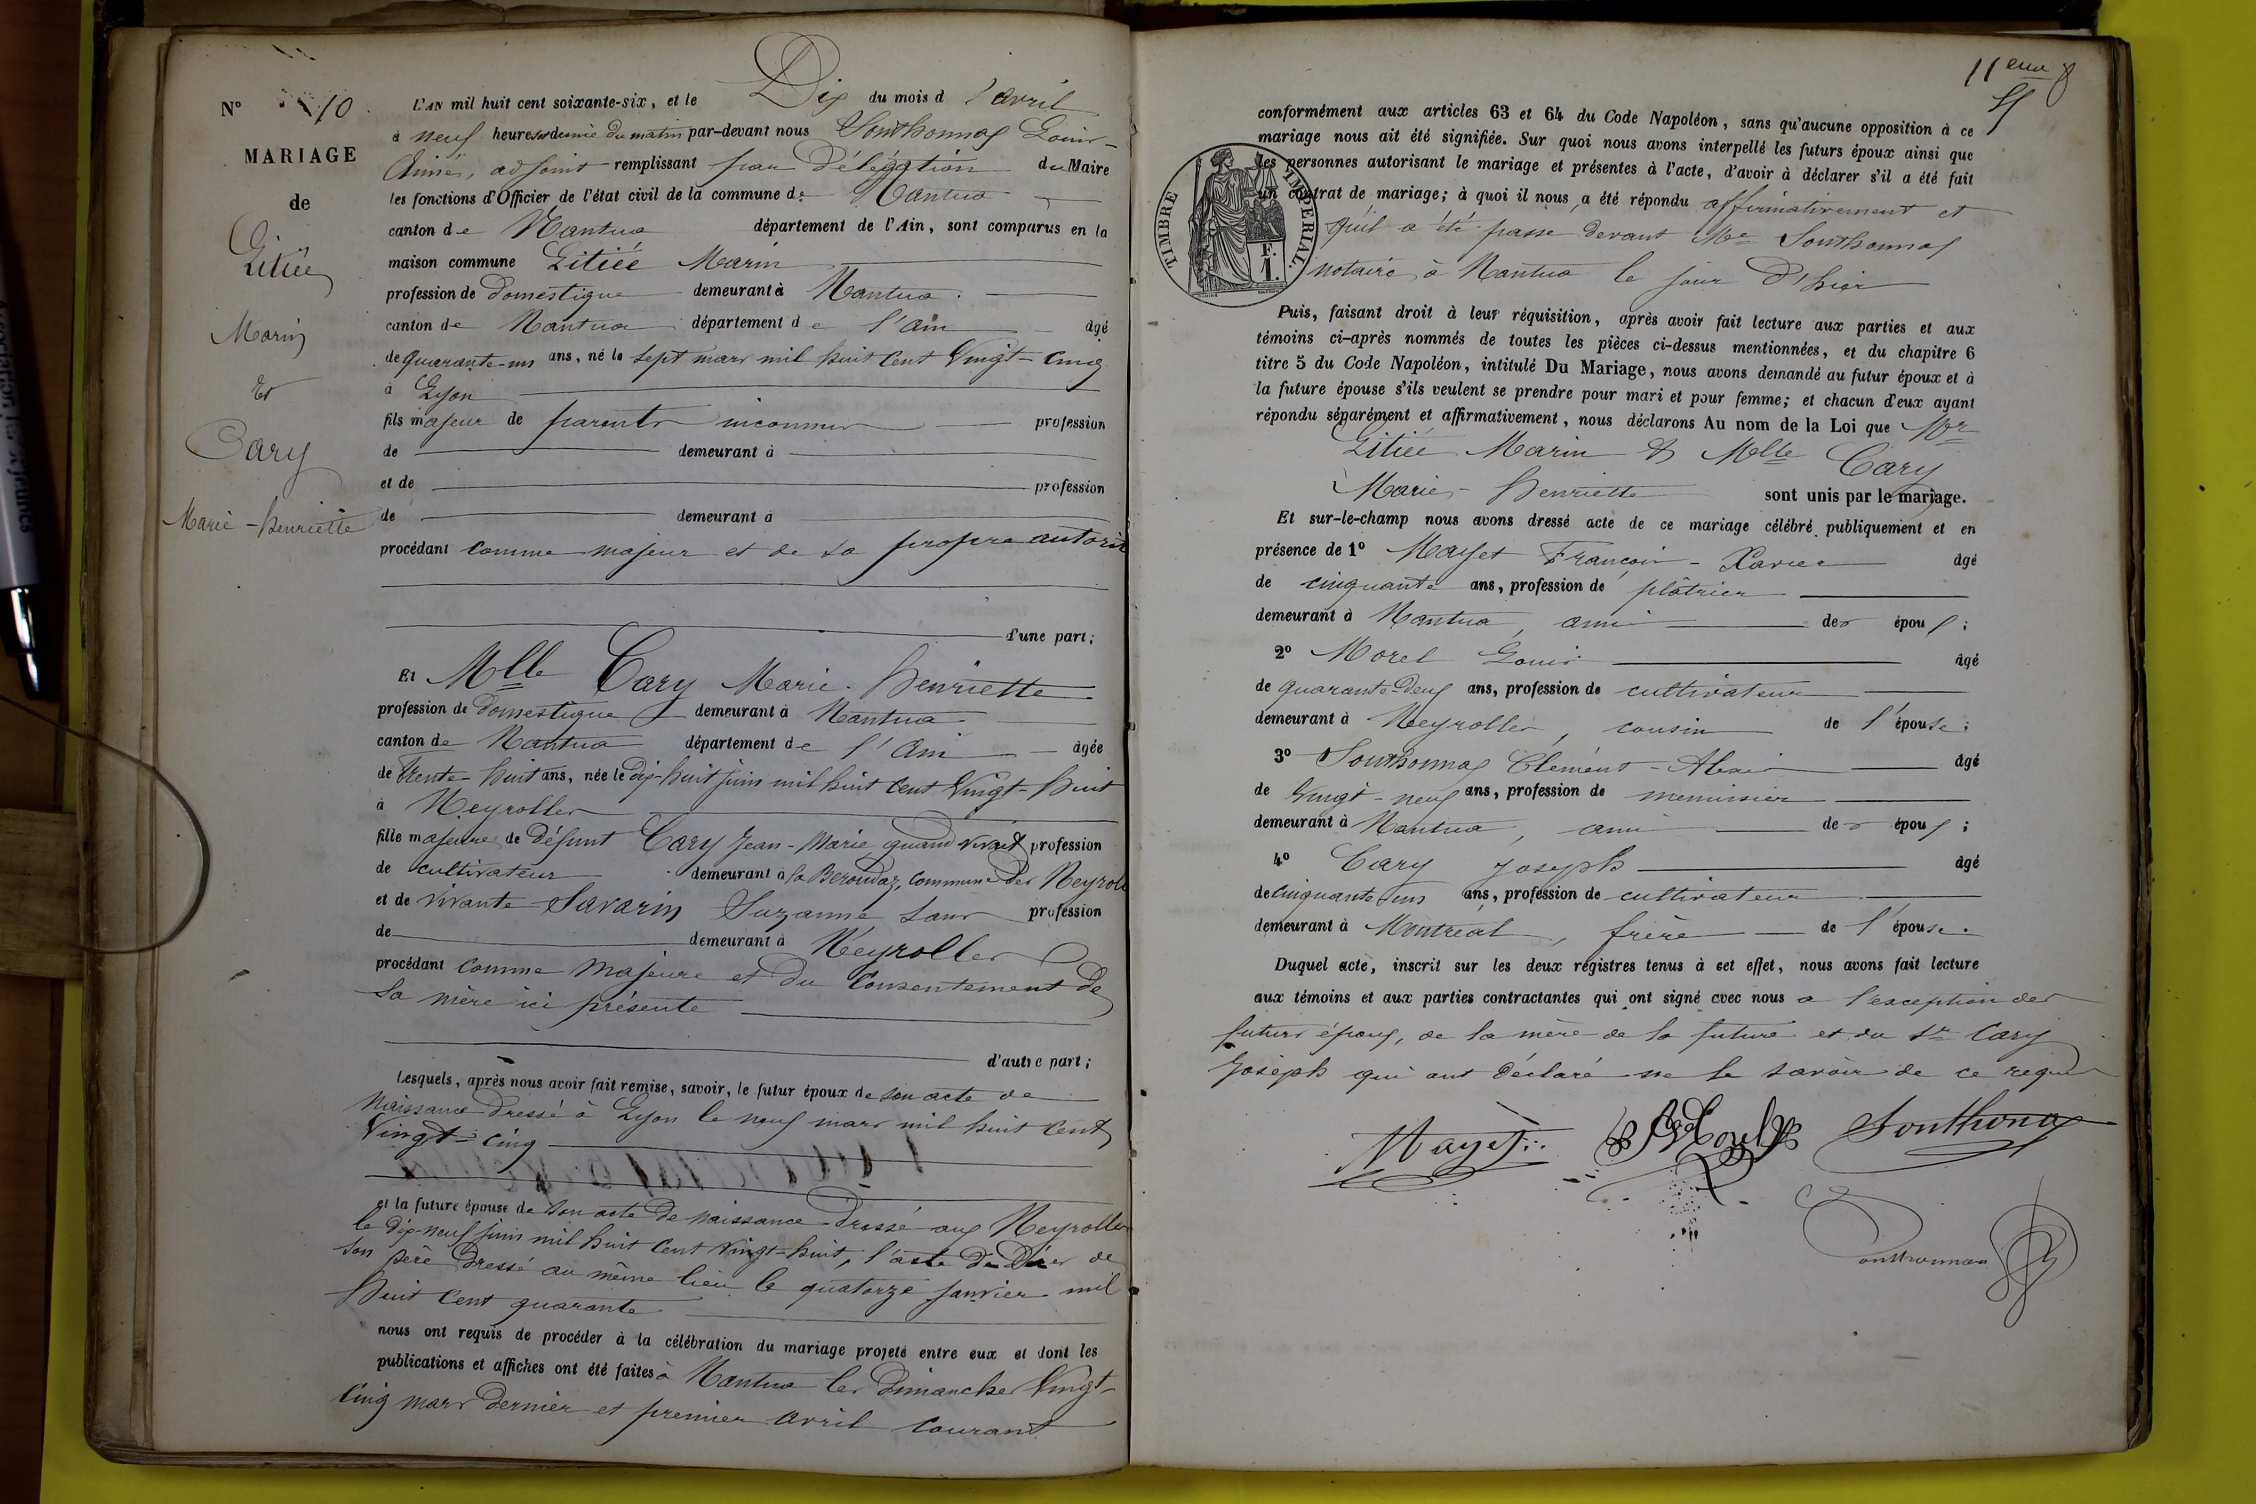 N° 10
MARIAGE
de
Litiée
Marin
Et
Cary
Marie-henriette
L'AN mil huit cent soixante-six, et le Dix du mois d'avril
à neuf heures et demie du matin par-devant nous Southonnax Louis-
Aimé, adjoint remplissant par Délégation du Maire
les fonctions d'Officier de l'état civil de la commune de Nantua
canton de Nantua département de l'Ain, sont comparus en la
maison commune Litiée Marin
profession de Domestique demeurant à Nantua
canton de Nantua département de l'ain âgé
de quarante-un ans, né le sept mars mil huit cent vingt-cinq
à Lyon
fils majeur de parents inconnus profession
de demeurant à
et de profession
de demeurant à
procédant comme majeur et de sa propre autorité
d'une part;
Et Mlle Cary Marie-henriette
profession de Domestique demeurant à Nantua
canton de Nantua département de l'Ain âgée
de trente-huit ans, née le dix-huit juin mil huit cent vingt-huit
à Neyrolles
fille majeure de défunt Cary Jean-Marie quand vivait profession
de cultivateur demeurant à la Beroudaz, commune des Neyrolles
et de vivante Savarin Suzanne sans profession
de demeurant à Neyrolles
procédant comme majeure et du consentement de
sa mère ici présente
d'autre part;
Lesquels, après nous avoir fait remise, savoir, le futur époux de son acte de
naissance dressé à Lyon le neuf mars mil huit cent
vingt-cinq
et la future épouse de son acte de naissance dressé aux Neyrolles
le dix-neuf juin mil huit cent vingt-huit, l'acte de Décès de
son père dressé au même lieu le quatorze janvier mil
huit cent quarante
nous ont requis de procéder à la célébration du mariage projeté entre eux et dont les
publications et affiches ont été faites à Nantua les Dimanches vingt-
cinq mars dernier et premier avril courant
11eme
conformément aux articles 63 et 64 du Code Napoléon, sans qu'aucune opposition à ce
mariage nous ait été signifiée. Sur quoi nous avons interpellé les futurs époux ainsi que
les personnes autorisant le mariage et présentes à l'acte, d'avoir à déclarer s'il a été fait
un contrat de mariage; à quoi il nous a été répondu affirmativement et
qu'il a été passé devant Me Southonnax
notaire à Nantua le jour d'hier
TIMBRE IMPERIAL.
F.
1.
Puis, faisant droit à leur réquisition, après avoir fait lecture aux parties et aux
témoins ci-après nommés de toutes les pièces ci-dessus mentionnées, et du chapitre 6
titre 5 du Code Napoléon, intitulé Du Mariage, nous avons demandé au futur époux et à
la future épouse s'ils veulent se prendre pour mari et pour femme; et chacun d'eux ayant
répondu séparément et affirmativement, nous déclarons Au nom de la Loi que Mr
Litiée Marin & Melle Cary
Marie-henriette sont unis par le mariage.
Et sur-le-champ nous avons dressé acte de ce mariage célébré publiquement et en
présence de 1° Mayet François-Xavier âgé
de cinquante ans, profession de plâtrier
demeurant à Nantua, ami des époux;
2° Morel Louis âgé
de quarante-deux ans, profession de cultivateur
demeurant à Neyrolles, cousin de l'épouse;
3° Southonnax Clément-Alexis âgé
de vingt-neuf ans, profession de menuisier
demeurant à Nantua, ami des époux;
4° Cary Joseph âgé
de cinquante-un ans, profession de cultivateur
demeurant à Montréal, frère de l'épouse.
Duquel acte, inscrit sur les deux registres tenus à cet effet, nous avons fait lecture
aux témoins et aux parties contractantes qui ont signé avec nous a l'exception des
futurs époux, de la mère de la future et du Sr Cary
Joseph qui ont déclaré ne le savoir de ce requis
Mayet
Southonax
Southonnax